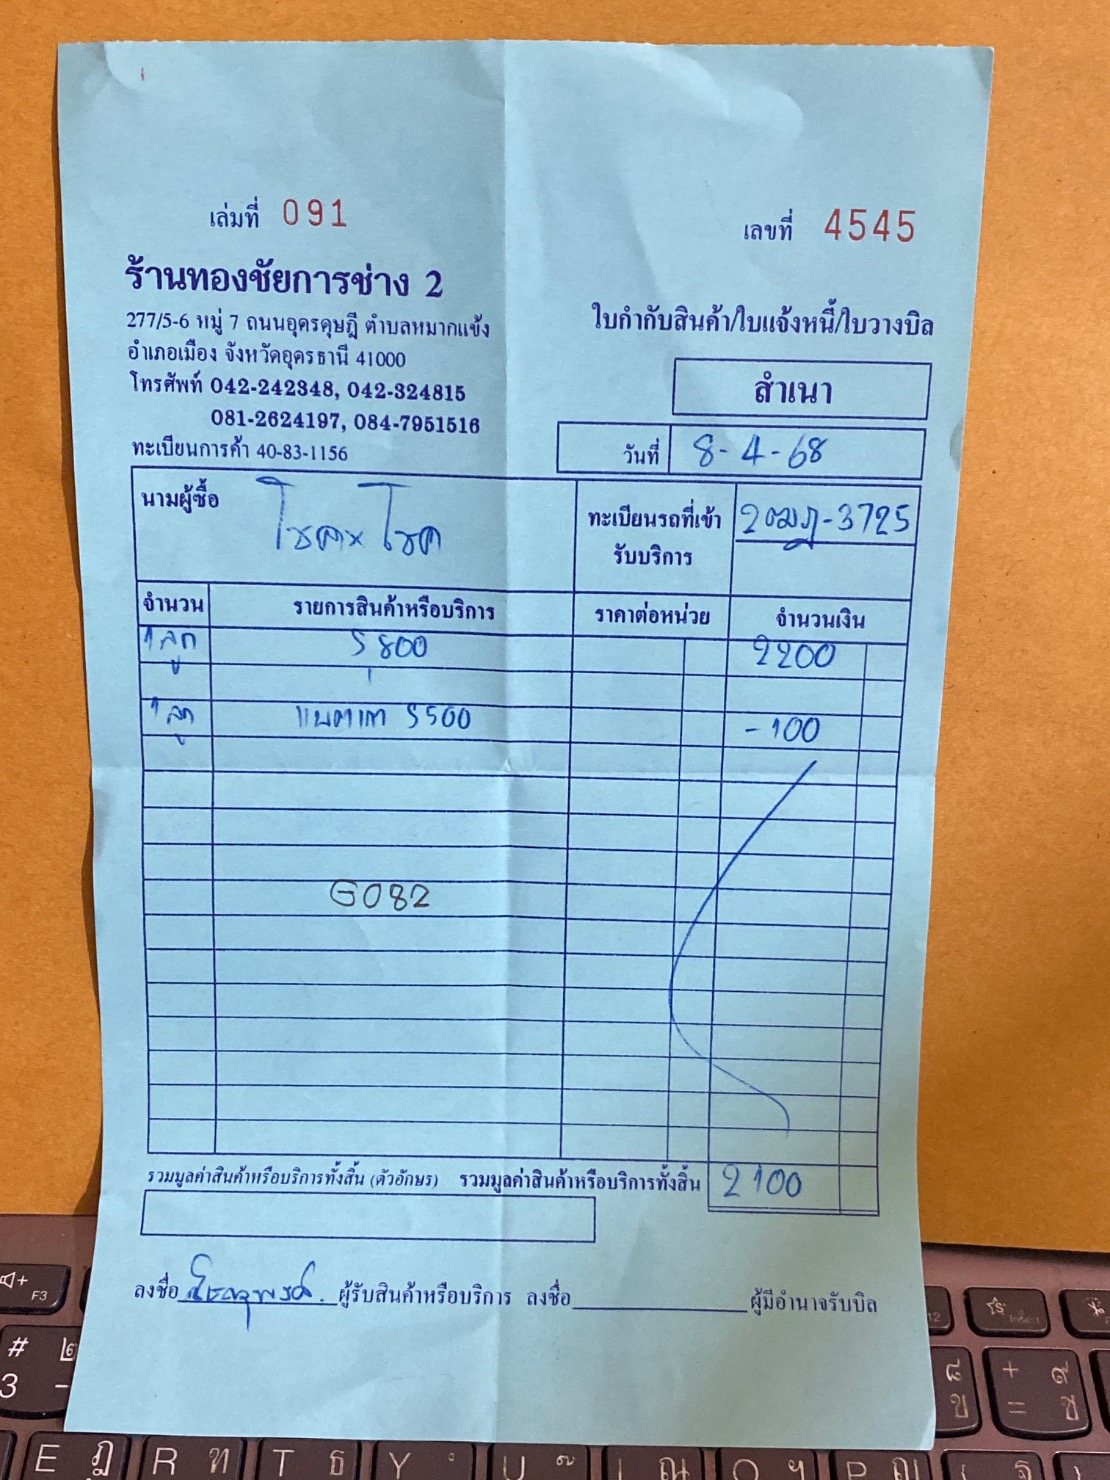 เล่มที่ 091
เลขที่ 4545
ร้านทองชัยการช่าง 2
277/5-6 หมู่ 7 ถนนอุดรดุษฎี ตำบลหมากแข้ง
อำเภอเมือง จังหวัดอุดรธานี 41000
โทรศัพท์ 042-242348, 042-324815
081-2624197, 084-7951516
ทะเบียนการค้า 40-83-1156
ใบกำกับสินค้า/ใบแจ้งหนี้/ใบวางบิล
สำเนา
วันที่ 8-4-68
นามผู้ซื้อ
ทะเบียนรถที่เข้า
รับบริการ
3725
จำนวน รายการสินค้าหรือบริการ ราคาต่อหน่วย จำนวนเงิน
1 ลูก 800 2200
1 ลูก -100
G082
รวมมูลค่าสินค้าหรือบริการทั้งสิ้น (ตัวอักษร) รวมมูลค่าสินค้าหรือบริการทั้งสิ้น 2100
ลงชื่อ ผู้รับสินค้าหรือบริการ ลงชื่อ ผู้มีอำนาจรับบิล
F3
12
# ๒
3 -
๘
ข
+ ๙
= ช
E ฎ R ฑ T ธ Y U ๊ I ณ O ฯ P ญ